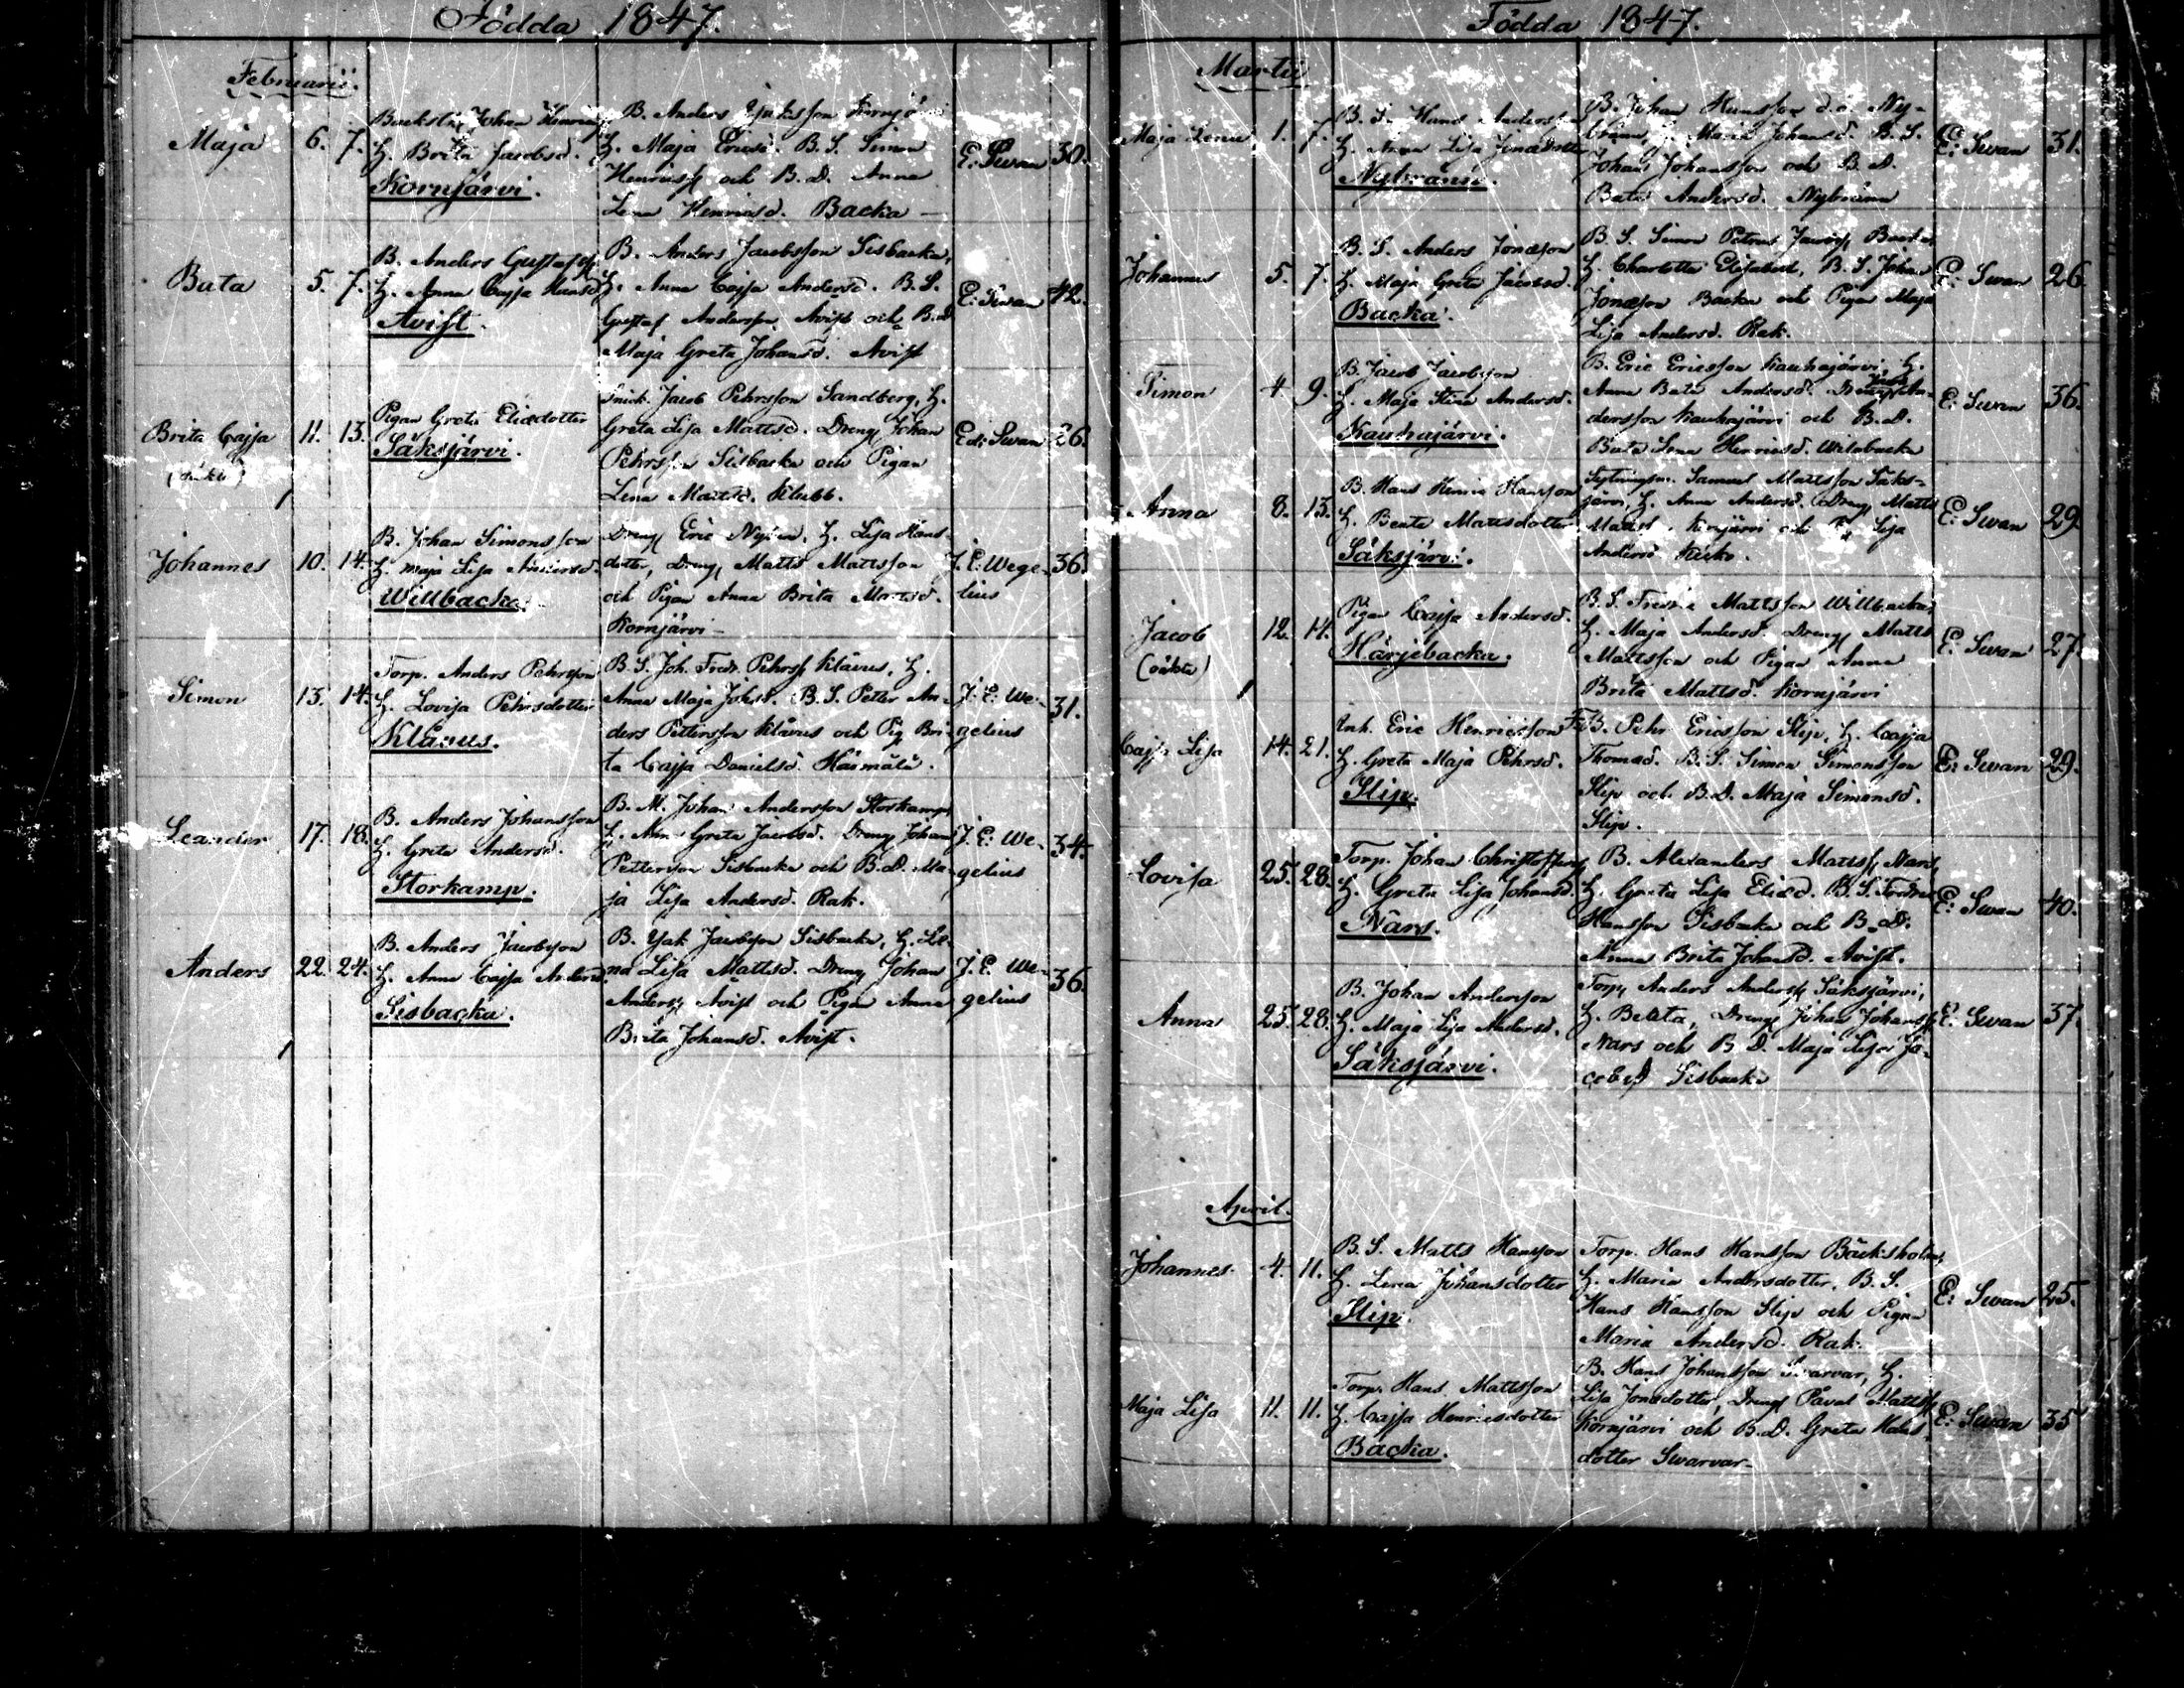 Födda 1847.
Februarii.
Maja 6. 7.
Johan
H. Brita Jacobsd.
Kornjärvi.
B. Anders
H. Maja Ericsd. B. S. Simon
och B. D. Anna
Lena Henricsd. Backa
E: Swan 30.
Beata 5. 7.
B. Anders Gustafss.
H. Anna Cajsa Hansd.
Avist.
B. Anders Jacobsson Sisbacka,
H. Anna Cajsa Andersd. B. S.
Gustaf Andersson Avist och B. D.
Maja Greta Johansd. Avist
E: Swan 42.
Brita Cajsa 11. 13.
Pigan Greta Eliædotter
Säksjärvi.
Jacob Pehrsson Sandberg, H.
Greta Lisa Mattsd. Dreng Johan
Pehrsson Sisbacka och Pigan
Lena Mattsd. Klubb.
Ed: Swan 26.
Johannes 10. 14.
B. Johan Simonsson
H. Maja Lisa Andersd.
Willbacka.
Dreng Eric H. Lisa Hans-
dotter, Dreng Matts Mattsson
och Pigan Anna Brita Mattsd.
Kornjärvi
J. E. Wege-
lius
36.
Simon 13. 14.
Torp. Anders Pehrsson
H. Lovisa Pehrsdotter
Klåvus.
B. S. Joh. Fredr. Pehrss. Klåvus, H.
Anna Maja Johsd. B. S. Petter An-
ders Pettersson Klåvus och Pig Bri-
ta Cajsa Danielsd.
J. E. We-
gelius
31.
Leander 17. 18.
B. Anders Johansson
H. Greta Andersd.
Storkamp.
B. M. Johan Andersson Storkamp,
H. Anna Greta Jacobsd. Dreng Johan
Pettersson Sisbacka och B. D. Ma-
ja Lisa Andersd. Rak.
J. E: We-
gelius
34.
Anders 22. 24.
B. Anders Jacobsson
H. Anna Cajsa Andersd.
Sisbacka.
B. Jak Jacobsson Sisbacka, H. Le-
na Lisa Mattsd. Dreng Johan
Anderss. Avist och Pigan Anna
Brita Johansd. Avist.
J. E. We-
gelius
36.
Födda 1847.
Martii
Maja Lena 1. 7.
B. S. Hans Andersson
H. Anna Lisa Jonædotter
Nybränn.
B. Johan Hansson d. ä. Ny-
bränn, H. Maria Johansd. B. S.
Johan Johansson och B. D.
Beata Andersd. Nybränn
E: Swan 31.
Johannes 5. 7.
B. S. Anders Jonæson
H. Maja Greta Jacobsd.
Backa.
B. S. Simon Petrus Backa,
H. Charlotta Elisabet, B. S. Johan
Jonæson Backa och Pigan Maja
Lisa Andersd. Rak.
E: Swan 26.
Simon 4 9.
B. Jacob Jacobsson
H. Maja Stina Andersd.
Kauhajärvi.
B. Eric Ericsson Kauhajärvi, H.
Anna Beata Andersd. Dreng An-
dersson Kauhajärvi och B. D.
Beata Lena Henricsd. Willbacka
E: Swan 36.
Anna 8. 13.
B. Hans Henric Hansson
H. Beata Mattsdotter
Säksjärvi.
Samuel Mattsson Säks-
järvi, H. Anna Andersd. Dreng Matts
och Lisa
Andersd.
E: Swan 29
Jacob 12. 14.
(oäkta)
Pigan Cajsa Andersd.
Härjebacka.
B. S. Fredric Mattsson Willbacka,
H. Maja Andersd. Dreng Matts
Mattsson och Pigan Anna
Brita Mattsd. Kornjärvi
E: Swan 27.
Cajsa Lisa 14. 21.
Inh. Eric Henricsson
H. Greta Maja Pehrsd.
Slip.
B. Pehr Ericsson Slip, H. Cajsa
Thomasd. B. S. Simon Simonsson
Slip och B. D. Maja Simonsd.
Slip.
E: Swan 29.
Lovisa 25. 28.
Torp. Johan Christoffers.
H. Greta Lisa Johansd.
Nars.
B. Alexanders Mattss. Nars,
H. Greta Lisa Eliæd. B. S. Fredric
Hansson Sisbacka och B. D.
Anna Brita Johansd. Avist.
E: Swan 40.
Anna 25. 28.
B. Johan Andersson
H. Maja Lisa Andersd.
Säksjärvi.
Torp. Anders Anderss. Säksjärvi,
H. Beata, Dreng Johan Johanss.
Nars och B. D. Maja Lisa Ja-
cobsd Sisbacka
E. Swan 37.
April.
Johannes 4. 11.
B. S. Matts Hansson
H. Lena Johansdotter
Slip.
Torp. Hans Hansson Bäcksholm,
H. Maria Andersdotter, B. S.
Hans Hansson Slip och Pigan
Maria Andersd. Rak.
E: Swan 25.
Maja Lisa 11. 11.
Torp. Hans Mattsson
H. Cajsa Henricsdotter
Backa.
B. Hans Johansson Swarvar, H.
Lisa Jonædotter, Dreng Påval Mattss.
Kornjärvi och B. D. Greta Hans-
dotter Swarvar
E: Swan 35